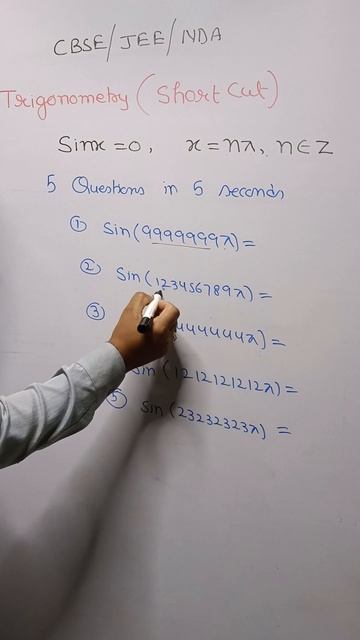 CBSE/JEE/NDA
Trigonometry (Short Cut)
Sinx = 0, x = nπ, n∈Z
5 Questions in 5 seconds
① Sin(99999999π) =
② Sin(123456789π) =
③ 444444π) =
Sin (1212121212π) =
⑤ Sin (23232323π) =